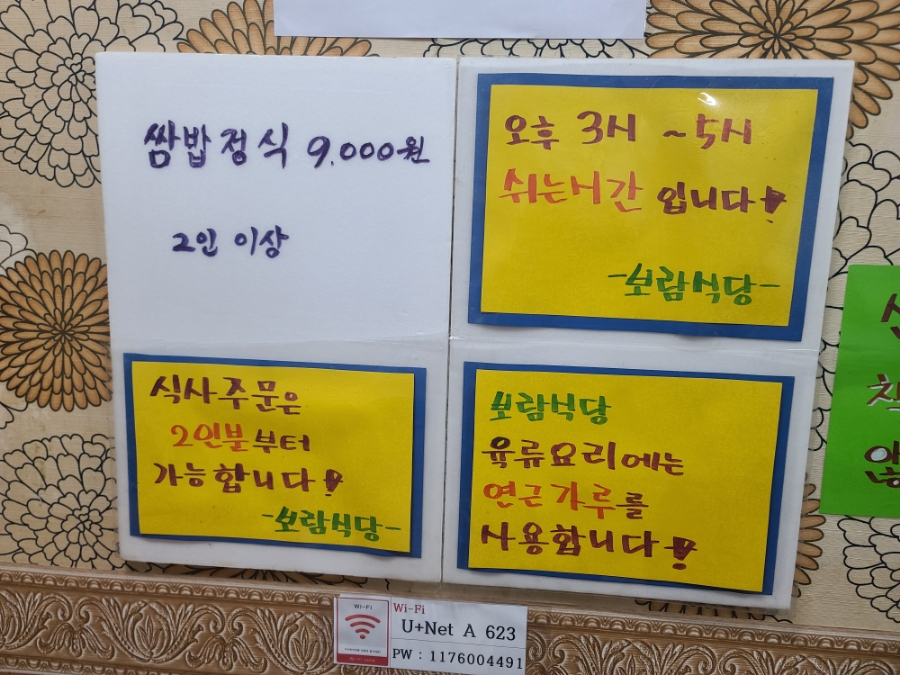 쌈밥정식 9,000원
2인 이상
오후 3시 ~5시
쉬는시간 입니다!
-보람식당-
식사주문은
2인분부터
가능합니다!
-보람식당-
보람식당
육류요리에는
연근가루를
사용합니다!
Wi-Fi
Wi-Fi
U+Net A 623
PW : 1176004491